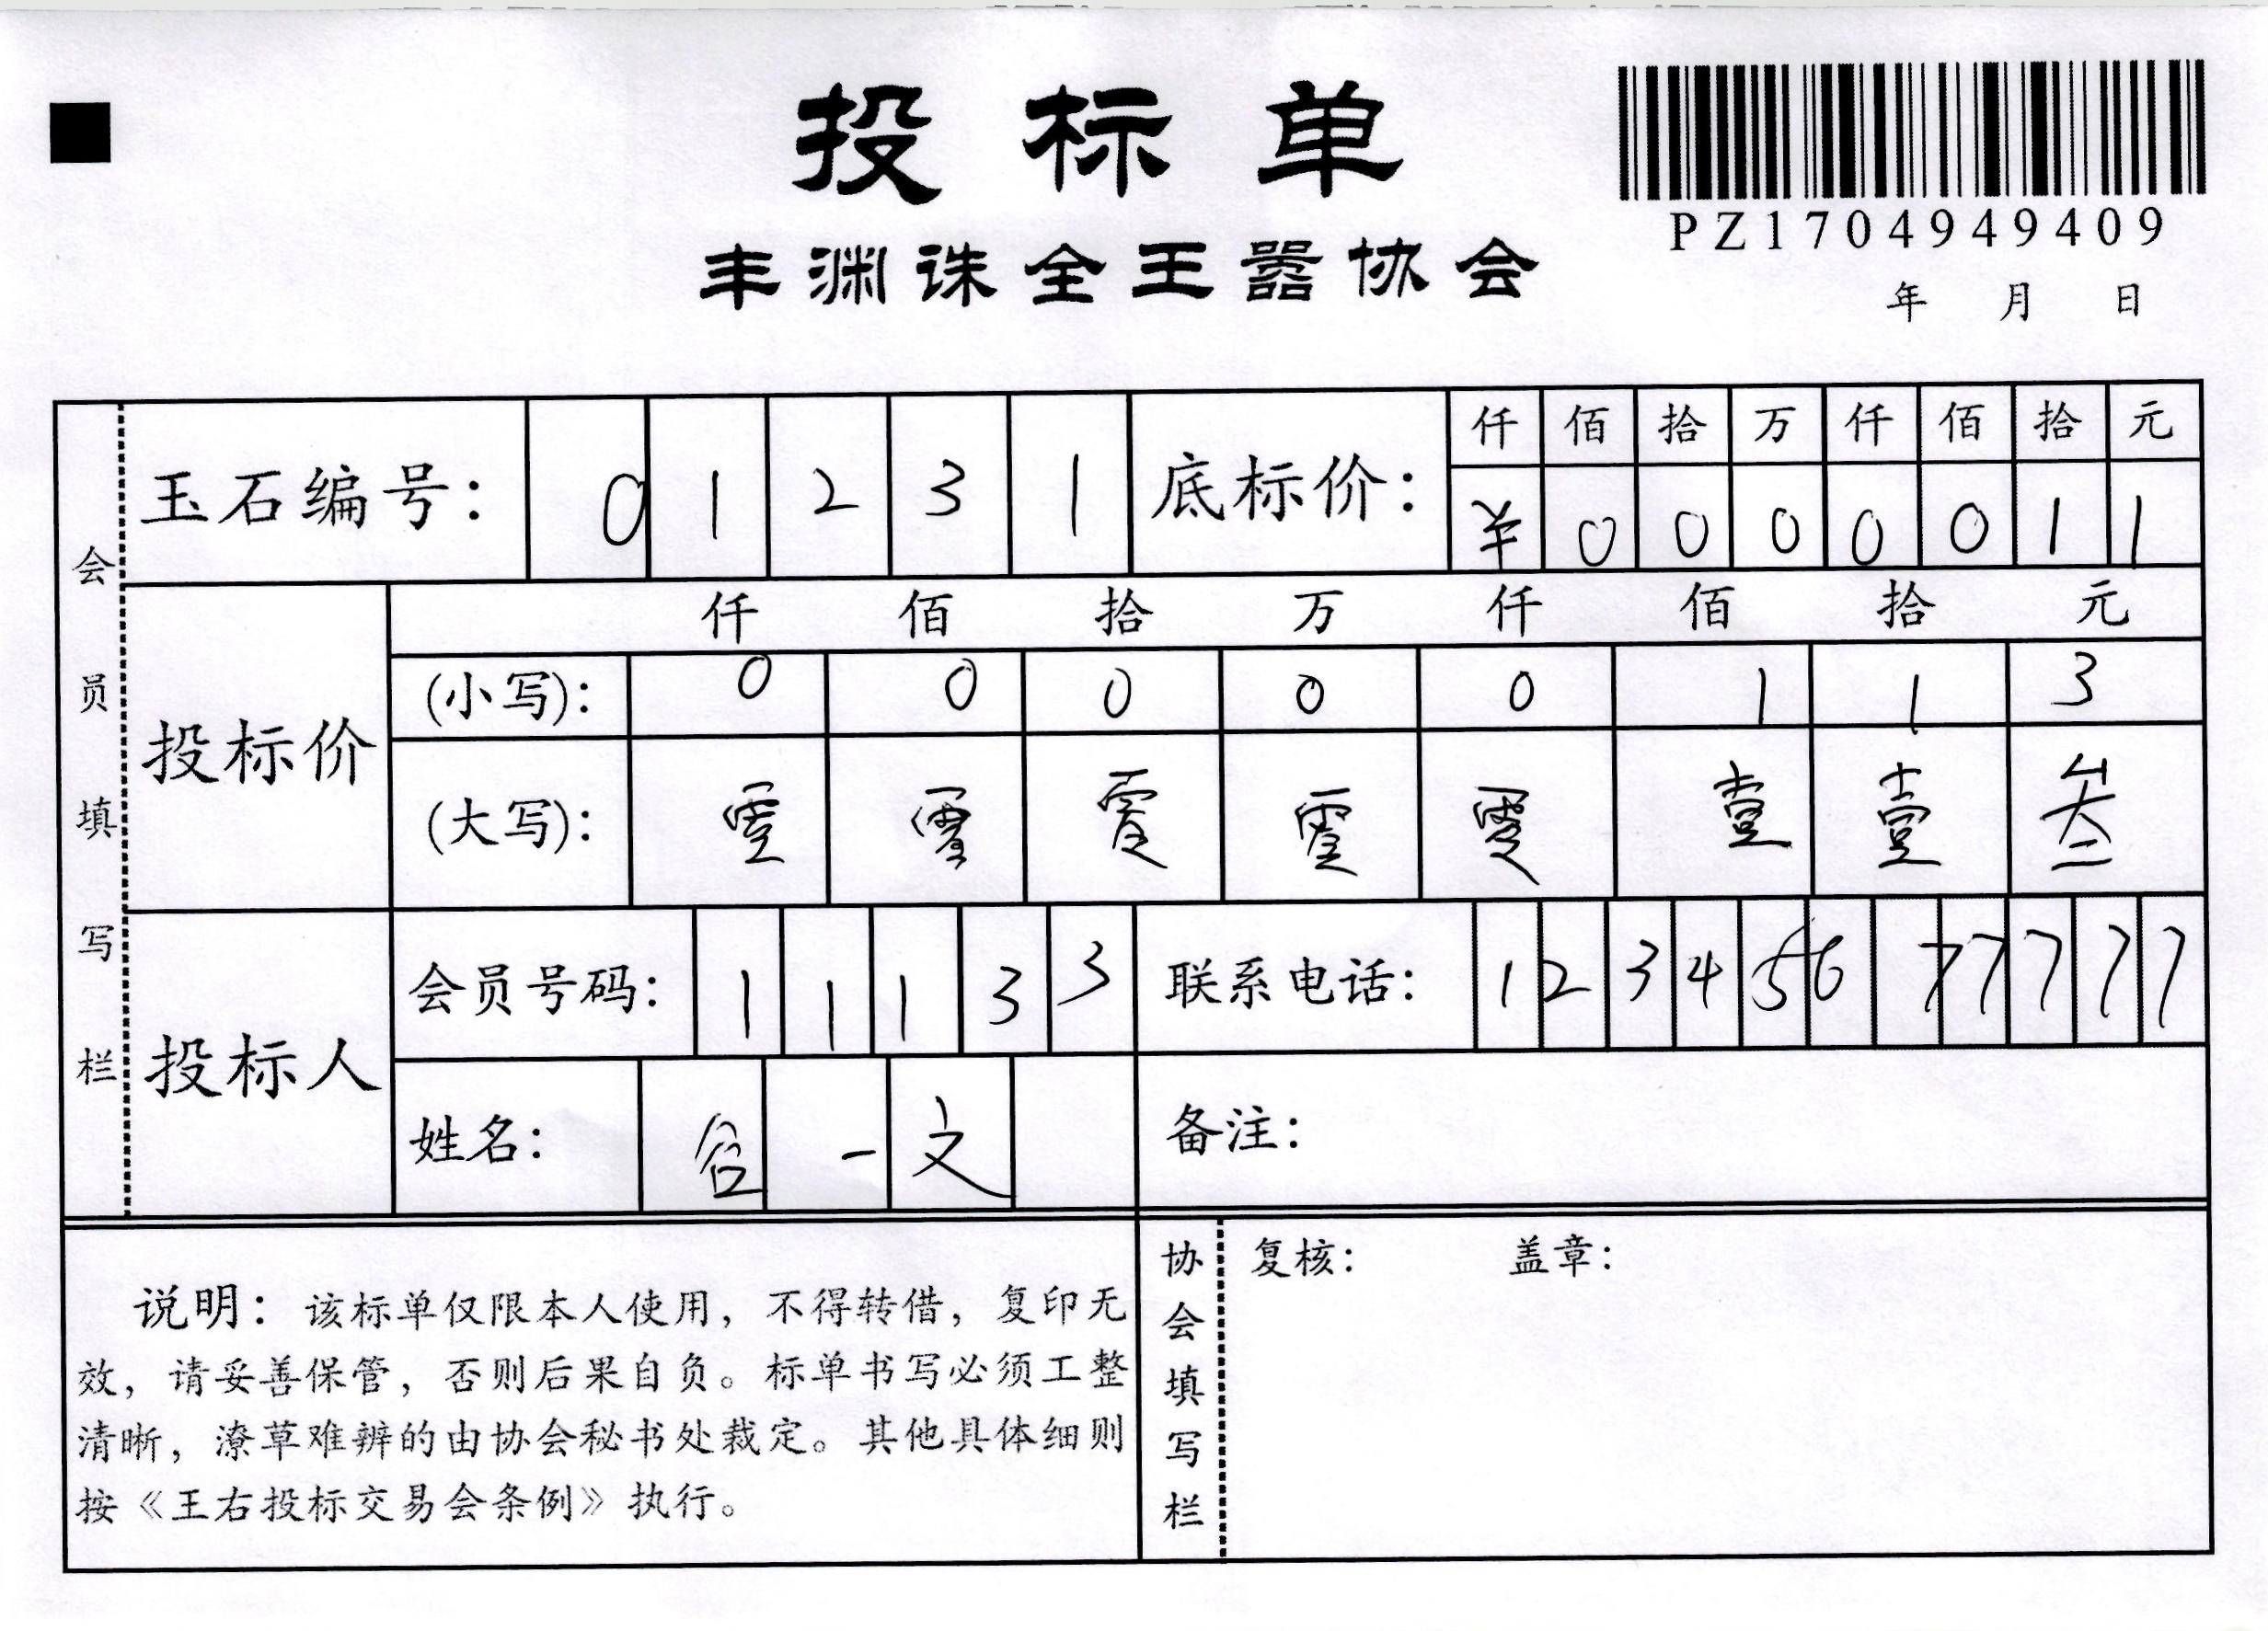 投标单
PZ1704949409
丰渊诛全王嚣协会
年 月 日
会员填写栏
玉石编号: 0 1 2 3 1
底标价: 仟 佰 拾 万 仟 佰 拾 元
¥ 0 0 0 0 0 1 1
投标价
仟 佰 拾 万 仟 佰 拾 元
(小写): 0 0 0 0 0 1 1 3
(大写): 零 零 零 零 零 壹 壹 叁
投标人
会员号码: 1 1 1 3 3
联系电话: 1 2 3 4 5 6 7 7 7 7 7
姓名: 一 文
备注:
说明: 该标单仅限本人使用, 不得转借, 复印无
效, 请妥善保管, 否则后果自负。标单书写必须工整
清晰, 潦草难辨的由协会秘书处裁定。其他具体细则
按《王右投标交易会条例》执行。
协会填写栏
复核: 盖章: